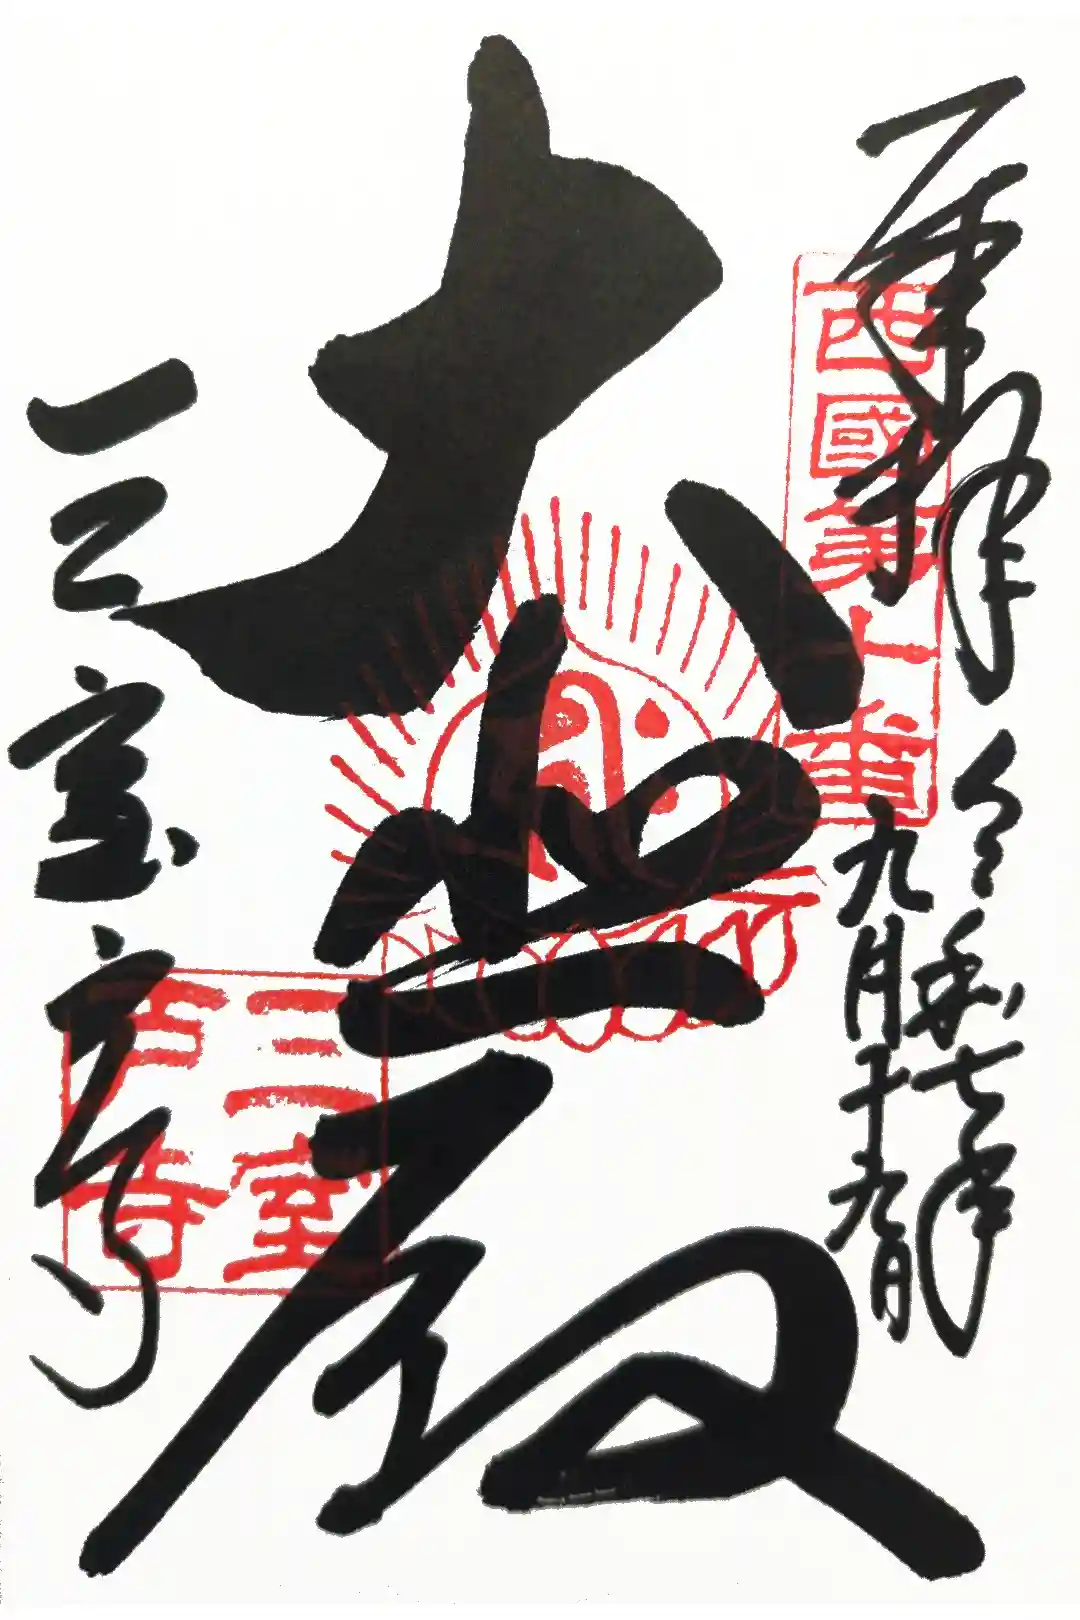 奉拝 令和七年
九月十九日
西國第十番
大悲殿
三室戸寺
三室
戸寺